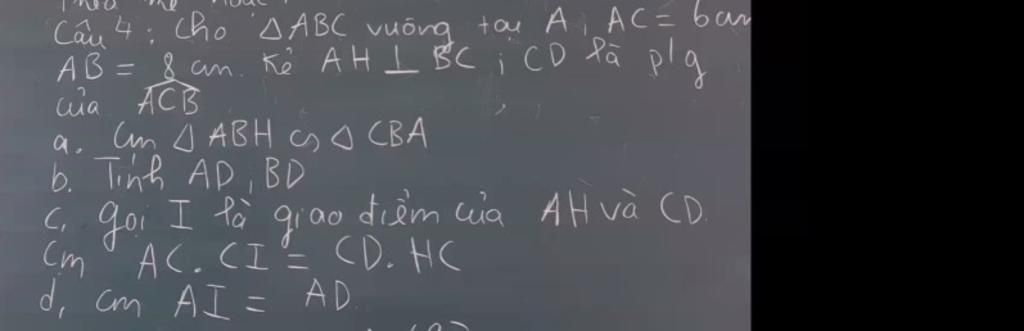 Câu 4: Cho △ABC vuông tại A, AC = 6cm
AB = 8 cm. Kẻ AH ⊥ BC; CD là p/g
của ACB
a. Cm △ ABH ∽ △ CBA
b. Tính AD, BD
c, gọi I là giao điểm của AH và CD.
Cm AC. CI = CD. HC
d, cm AI = AD